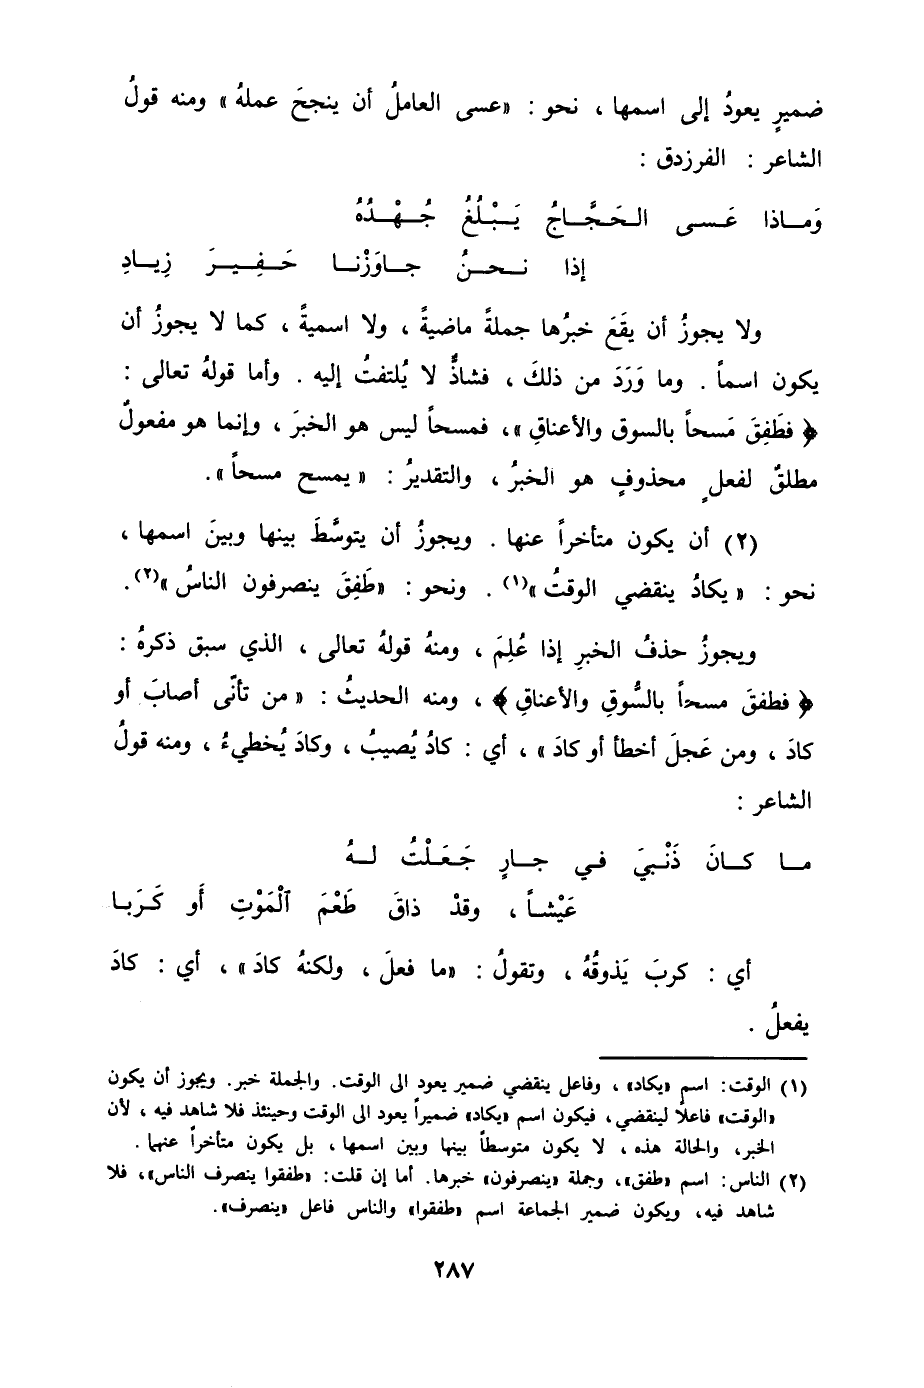 ضميرٍ يعودُ إلى اسمها ، نحو : «عسى العاملُ أن ينجحَ عملهُ» ومنه قولُ
الشاعر : الفرزدق :
وَمـاذا عَـسـى الـحَـجَّـاجُ يَـبْـلُغُ جُـهْـدُهُ
إذا نـحـنُ جـاوَزْنـا حَـفِـيـرَ زِيـادِ
ولا يجوزُ أن يقَعَ خبرُها جملةً ماضيةً ، ولا اسميةً ، كما لا يجوزُ أن
يكون اسماً . وما وَرَدَ من ذلكَ ، فشاذٌّ لا يُلتفتُ إليه . وأما قولهُ تعالى :
﴿ فطَفِقَ مَسحاً بالسوق والأعناقِ »، فمسحاً ليس هو الخبرَ ، وإنما هو مفعولٌ
مطلقٌ لفعلٍ محذوفٍ هو الخبرُ ، والتقديرُ : « يمسح مسحاً ».
(٢) أن يكون متأخراً عنها . ويجوزُ أن يتوسَّطَ بينها وبينَ اسمها ،
نحو : « يكادُ ينقضي الوقتُ »(١) . ونحو : «طَفِقَ ينصرفون الناسُ »(٢).
ويجوزُ حذفُ الخبرِ إذا عُلِمَ ، ومنهُ قولهُ تعالى ، الذي سبق ذكرهُ :
﴿ فطفقَ مسحاً بالسُّوقِ والأعناقِ ﴾ ، ومنه الحديثُ : « من تأنَّى أصابَ أو
كادَ ، ومن عَجلَ أخطأ أو كادَ » ، أي : كادُ يُصيبُ ، وكادَ يُخطيءُ ، ومنه قولُ
الشاعر :
مـا كـانَ ذَنْبـيَ فـي جـارٍ جَـعَـلْـتُ لـهُ
عَيْشـاً ، وقدْ ذاقَ طَعْمَ ٱلْمَوْتِ أَو كَـرَبـا
أي : كربَ يَذوقُهُ ، وتقولُ : «ما فعلَ ، ولكنهُ كادَ» ، أي : كادَ
يفعلُ .
(١) الوقت: اسم «يكاد» ، وفاعل ينقضي ضمير يعود الى الوقت. والجملة خبر. ويجوز أن يكون
«الوقت» فاعلاً لينقضي، فيكون اسم «يكاد» ضميراً يعود الى الوقت وحينئذ فلا شاهد فيه ، لأن
الخبر، والحالة هذه ، لا يكون متوسطاً بينها وبين اسمها، بل يكون متأخراً عنها .
(٢) الناس: اسم «طفق»، وجملة «ينصرفون» خبرها. أما إن قلت: «طفقوا ينصرف الناس»، فلا
شاهد فيه، ويكون ضمير الجماعة اسم «طفقوا» والناس فاعل «ينصرف».
٢٨٧